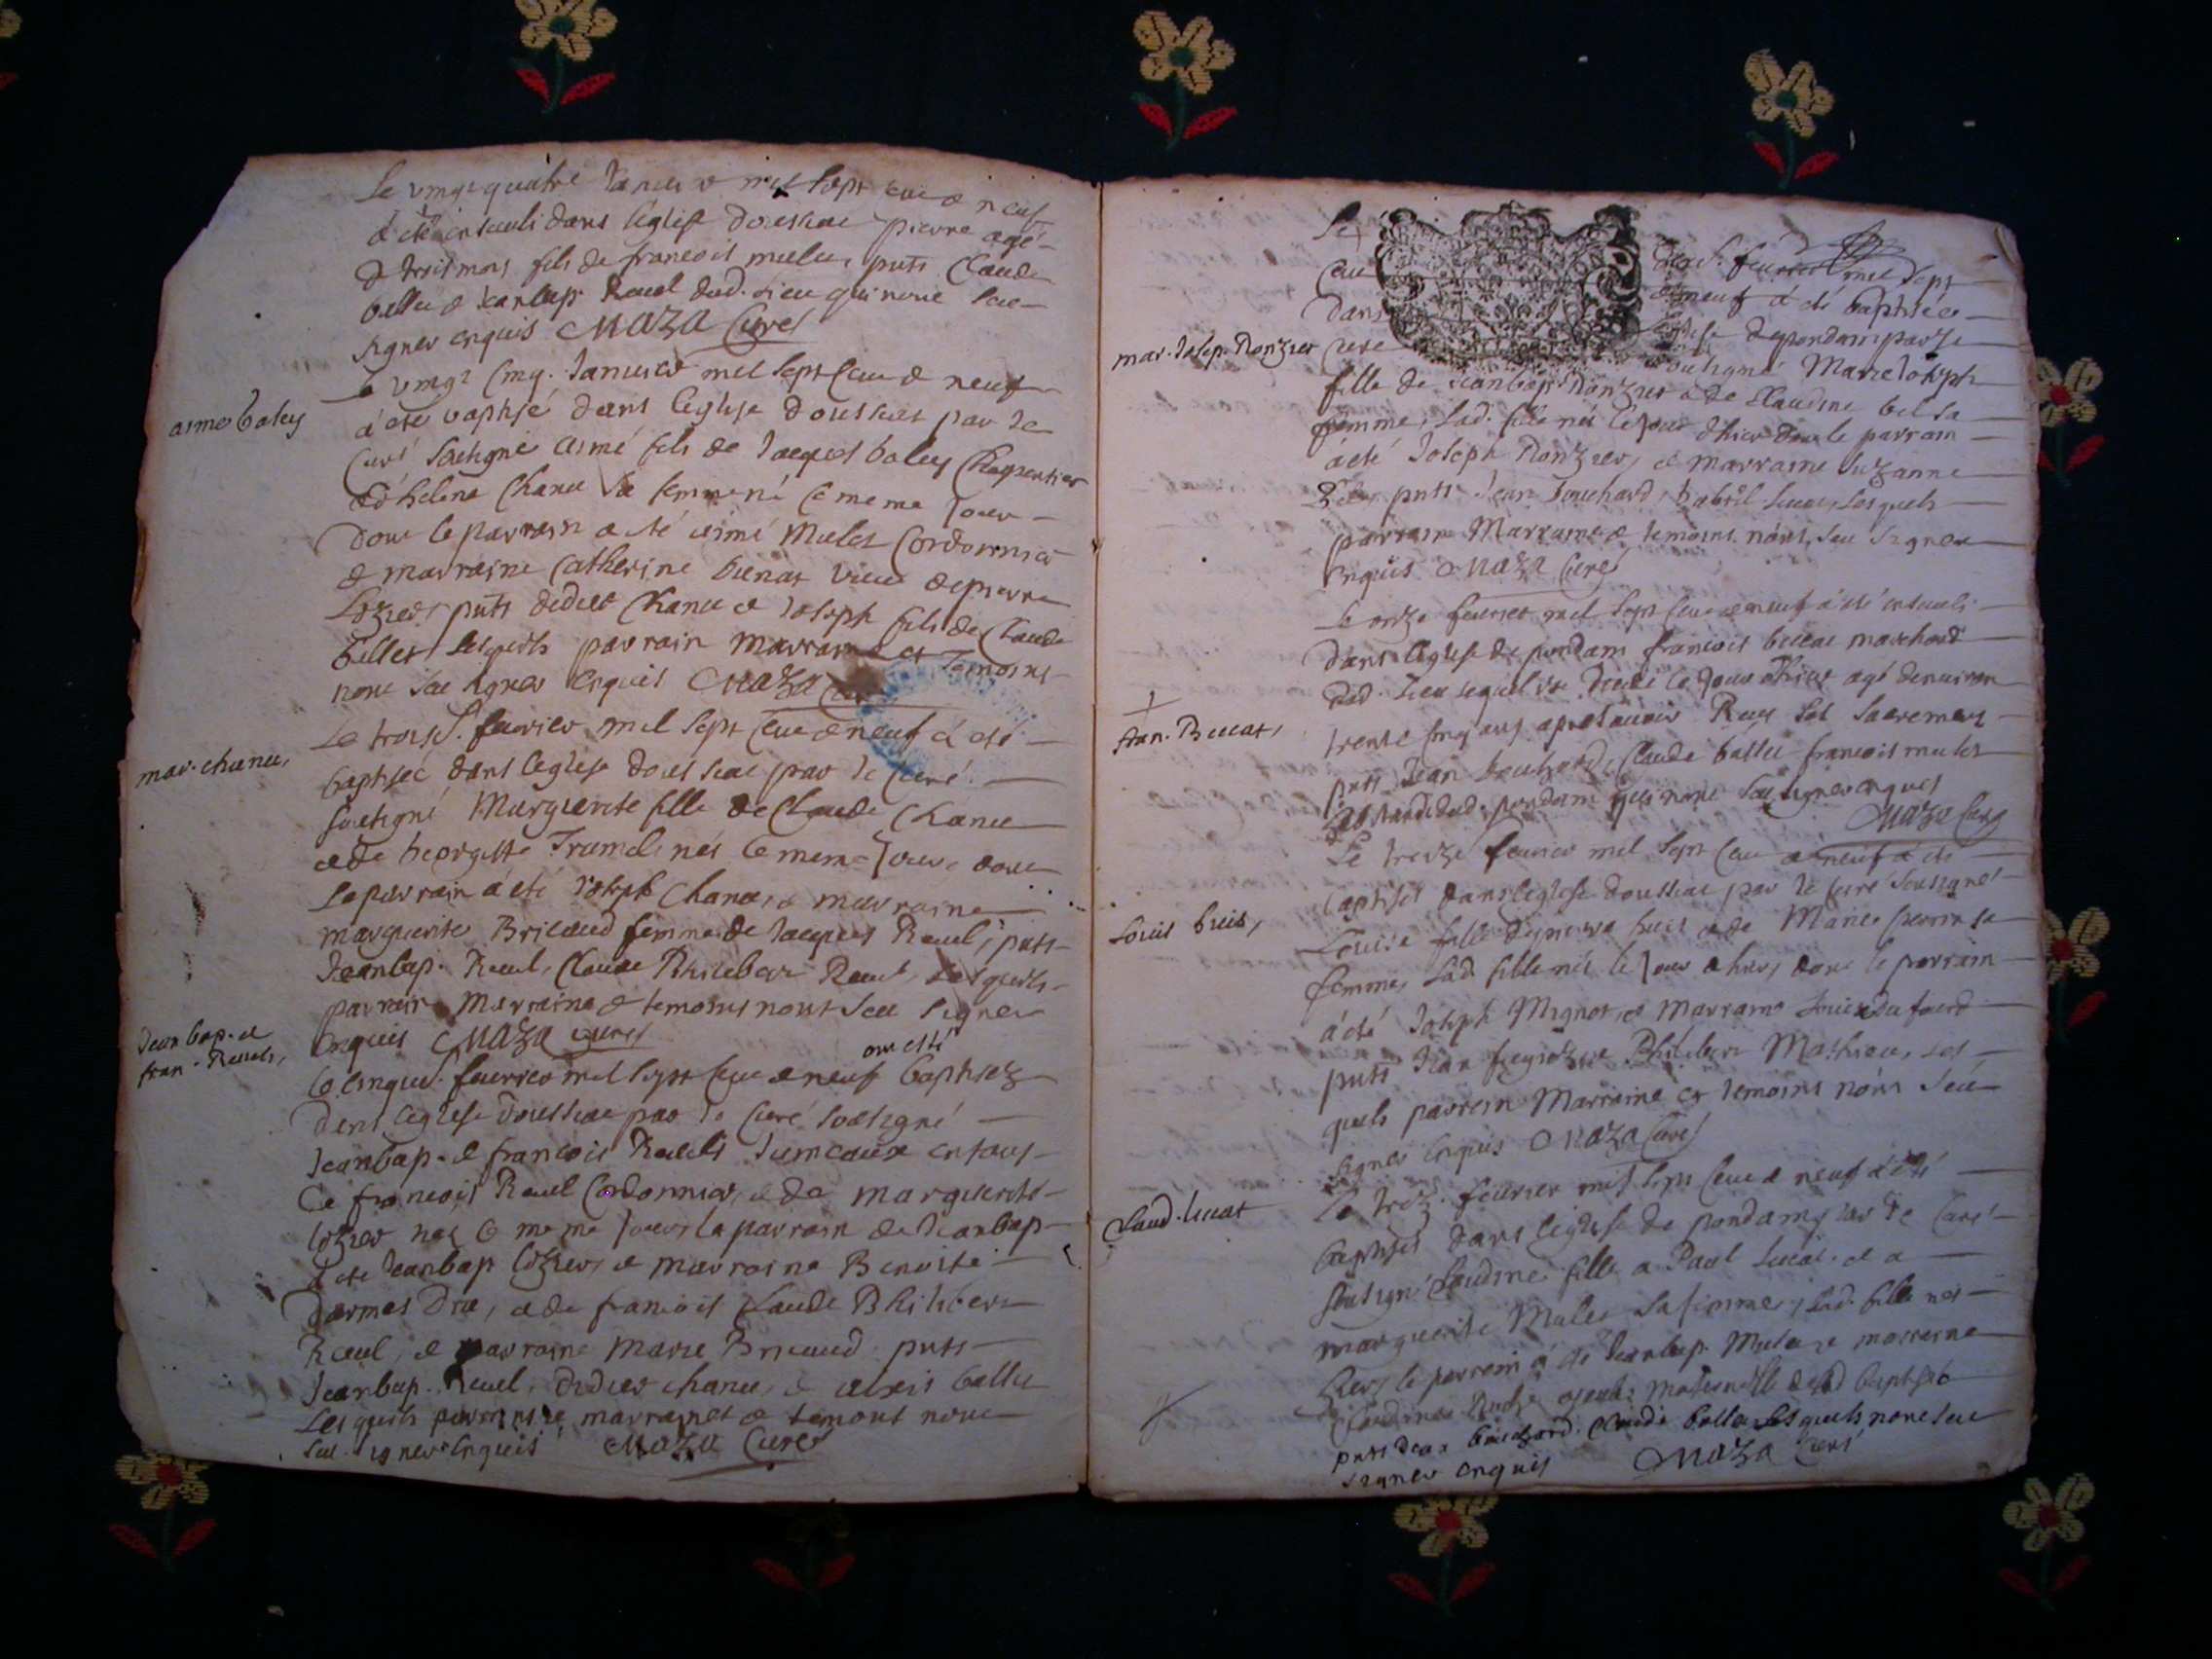 Le vingt quatre Janvier mil sept cent & neuf
a été enseveli dans l'eglise doussiat pierre agé
de trois mois fils de francois mulet, puts Claude
ballet & Jeanbap. Ravel dud. Lieu qui nont sceu
signer enquis Maza Curé
aimé baley
Le vingt cinq. Janvier mil sept cent & neuf
a été baptisé dans l'eglise doussiat par le
Curé soubsigné aimé fils de Jacques baley Charpentier
& d'helene Chanel sa femme né le meme jour
dont le parrain a été aimé Mulet Cordonnier
& marraine Catherine vieux de pierre
puts didier Chanel & Joseph fils de Claude
ballet lesquels parrain marraine et temoins
nont sceu signer enquis Maza Curé
mar. chanel,
Le trois. fevrier mil sept cent & neuf a été
baptisée dans l'eglise doussiat par le Curé
soubsigné Marguerite fille de Claude Chanel
& de georgette née le meme jour, dont
le parrain a été Joseph Chanel & marraine
marguerite Bricaud femme de Jacques Ravel, puts
Jeanbap. Ravel, Claude Philibert Ravel, Lesquels
parrain Marraine & temoins nont sceu signer
enquis Maza curé
Jean bap. et
fran. Ravels,
ont esté
le cinqu. fevrier mil sept cent & neuf baptisez
dans l'eglise doussiat par le Curé soubsigné
Jeanbap. & francois Ravels Jumeaux enfans
de francois Ravel Cordonnier, & de marguerite
nez le meme jour le parrain de Jeanbap
a été Jeanbap & marraine Benoite
& de francois Claude Philibert
Ravel, & marraine Marie Bricaud puts
Jeanbap. Ravel, didier chanel, & alexis ballet
Lesquels parrains & marraines & temoins nont
sceu signer Enquis Maza Curé
Le fevrier mil sept
cent & neuf a été baptisée
dans l'eglise de pondam par le
mar. Josep. Ronzier
Curé soubsigné Marie Joseph
fille de Jeanbap Ronzier & de Claudine sa
femme, Lad. fille née le jour d'hier dont le parrain
a été Joseph Ronzier, & marraine Suzanne
puts Jean bouchard, & abril Lucat, Lesquels
parrain Marraine & temoins nont sceu signer
enquis Maza Curé
Le onze fevrier mil sept cent & neuf a été enseveli
dans l'eglise de pondam francois beccat marchand
dud. Lieu lequel est decedé le jour d'hier agé denviron
fran. Beccat,
trente cinq ans apres avoir Receu les sacremens
puts Jean bouchard, Claude ballet francois mulet
dud. pondam qui nont sceu signer enquis
Maza Curé
Le treize fevrier mil sept cent & neuf a été
baptisée dans l'eglise doussiat par le Curé soubsigné
Louis buis,
Louise fille de pierre buis & de Marie perrin sa
femme, Lad. fille née le jour d'hier, dont le parrain
a été Joseph Mignot, & marraine Louise
puts Jean & Philibert Mathieu, Les
quels parrain Marraine & temoins nont sceu
signer enquis Maza Curé
Claud. lucat
Le treiz. fevrier mil sept cent & neuf a été
baptisée dans l'eglise de pondam par le Curé
soubsigné Claudine fille a Paul Lucat & a
marguerite Mulet sa femme, Lad. fille née
hier, le parrain a été Jeanbap. Mulet & marraine
Claudine ayeule maternelle de lad baptisée
puts Jean bouchard. Claude ballet Lesquels nont sceu
signer enquis Maza Curé